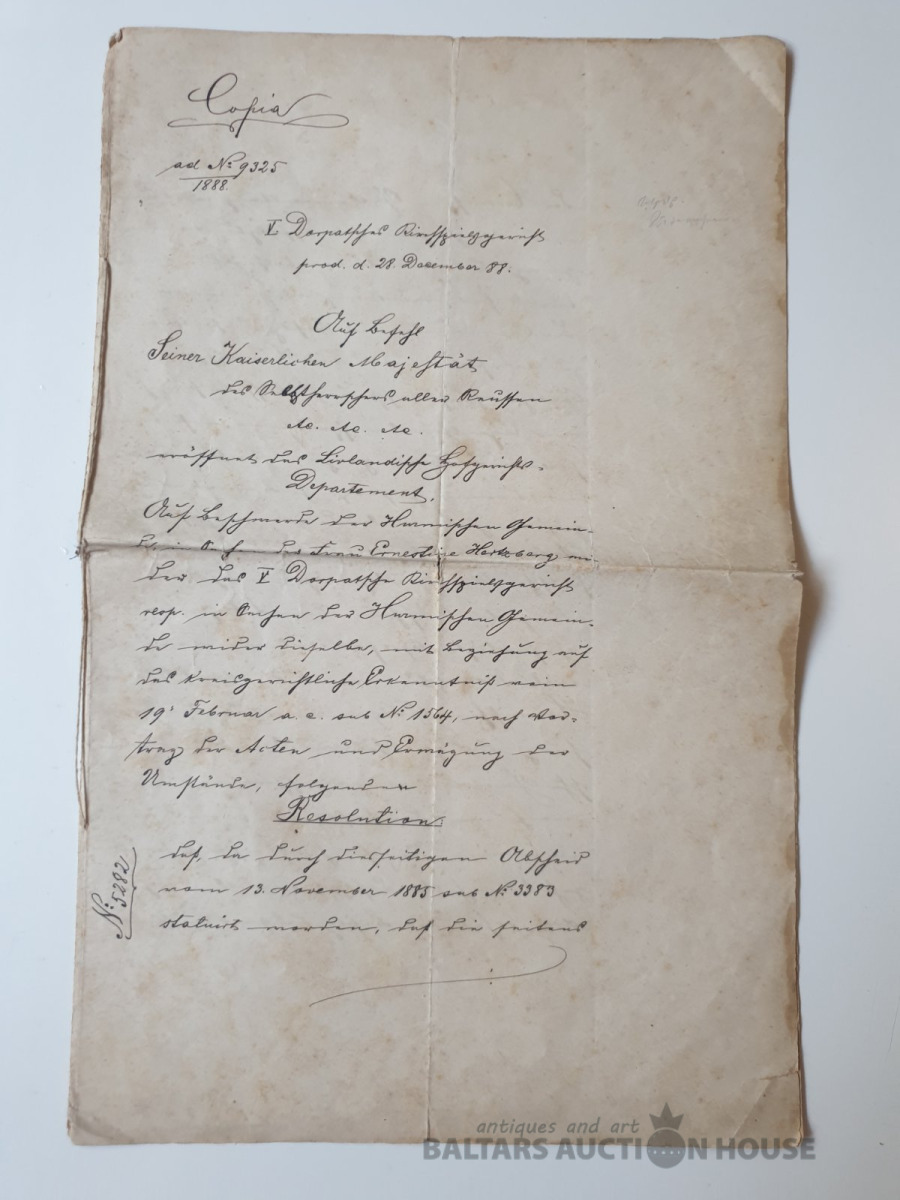 Copia
ad № 9325
1888.
V Dorpatsches Kirchspielsgericht
prod. d. 28. December 88.
Auf Befehl
Seiner Kaiserlichen Majestät
des Selbstherrschers aller Reussen
etc. etc. etc.
eröffnet das Livländische Hofgerichts-
Departement,
Auf Beschwerde der Hurmischen Gemein-
de, in S. f. der Frau Ernestine Hertzberg wi-
der das V Dorpatsche Kirchspielsgericht
resp. in Sachen der Hurmischen Gemein-
de wider dieselbe, mit Beziehung auf
das kreisgerichtliche Erkenntniß vom
19. Februar a. c. sub № 1564, nach Vor-
trag der Acten und Erwägung der
Umstände, folgende
Resolution:
daß, da durch diesseitigen Abscheid
vom 13. November 1885 sub № 3383
statuirt worden, daß die seitens
№ 5282
antiques and art
BALTARS AUCTION HOUSE